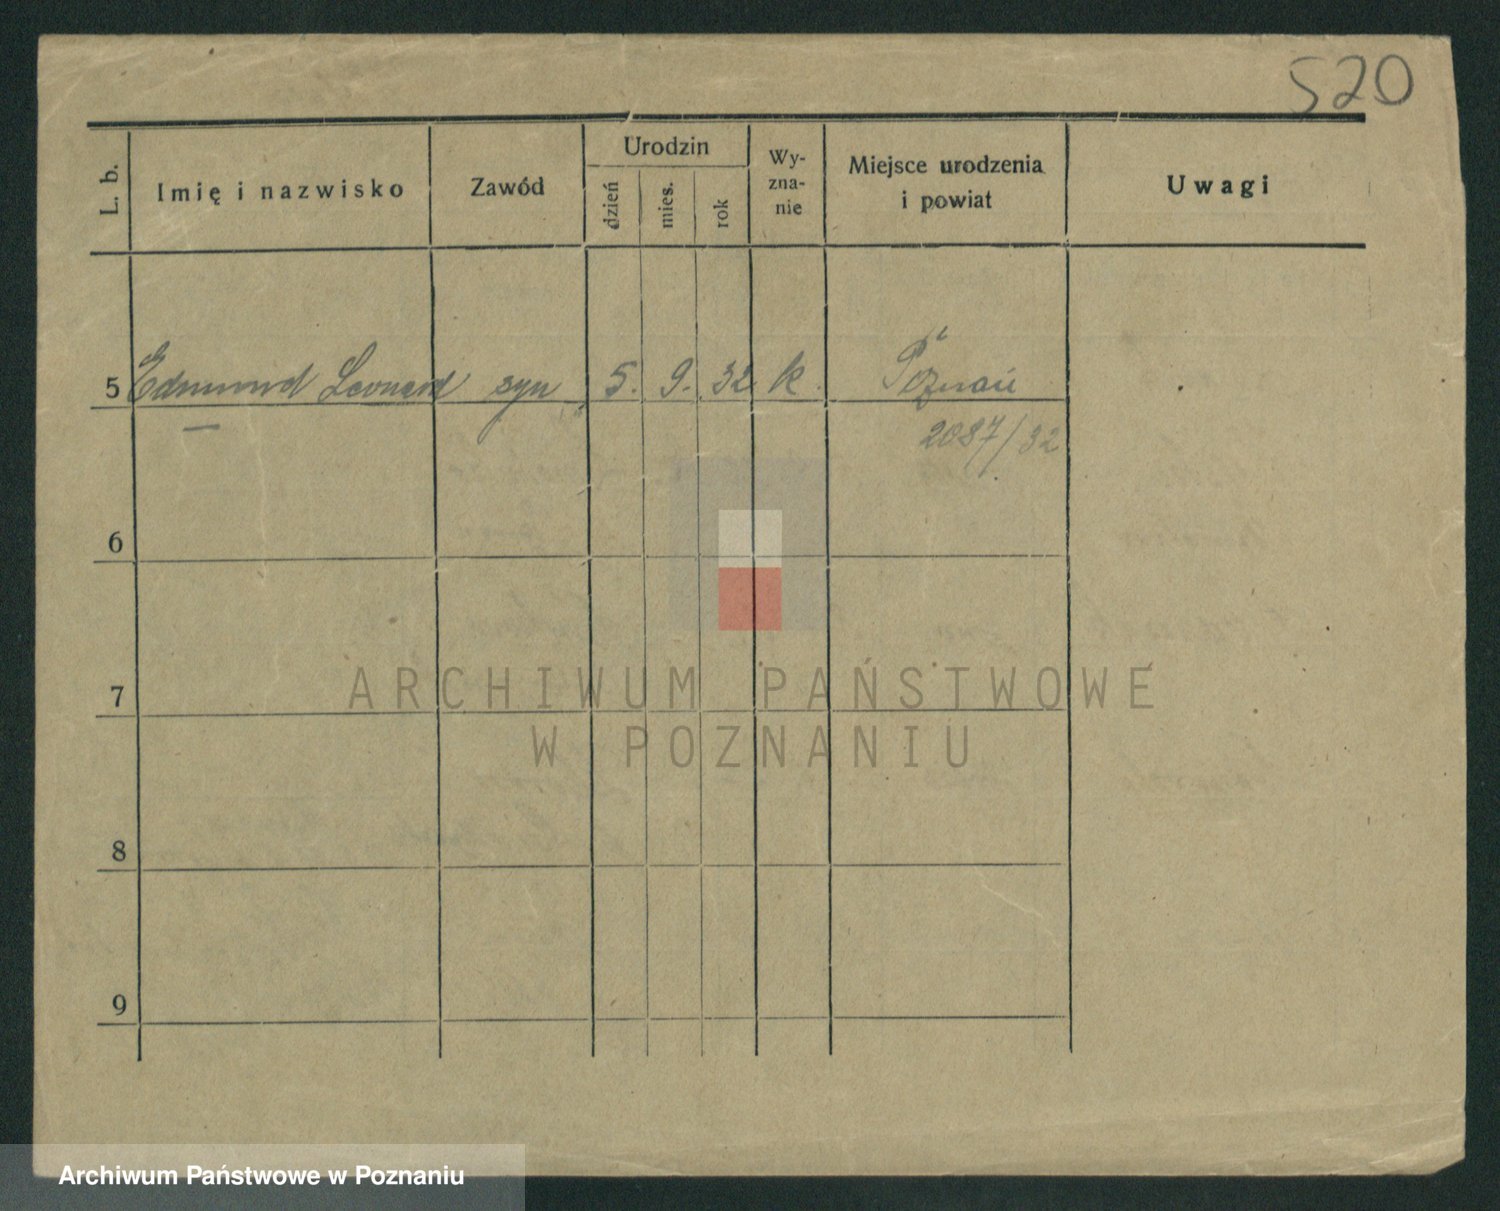 520
L. b. Imię i nazwisko Zawód Urodzin dzień mies. rok Wy-zna-nie Miejsce urodzenia i powiat Uwagi
5 Edmund Leonard syn 5. 9. 32 k. Poznań
2087/32
6
ARCHIWUM PAŃSTWOWE
7
W POZNANIU
8
9
Archiwum Państwowe w Poznaniu